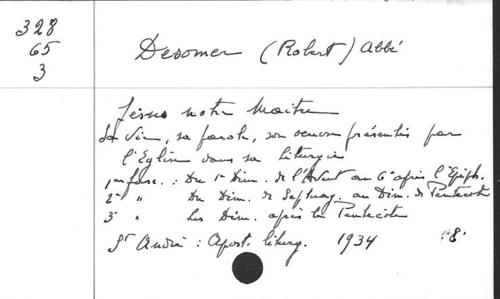 328
65
3
Desomer (Robert) Abbé
Jésus notre Maître
Sa vie, sa parole, son oeuvre présentés par
l'Eglise dans sa liturgie
1er fasc. : Du 1er Dim. de l'Avent au 6e après l'Epiph.
2e " Du Dim. de Septuag. au Dim. de Pentecôte
3e " Les Dim. après la Pentecôte
St André : Apost. liturg. 1934 8°